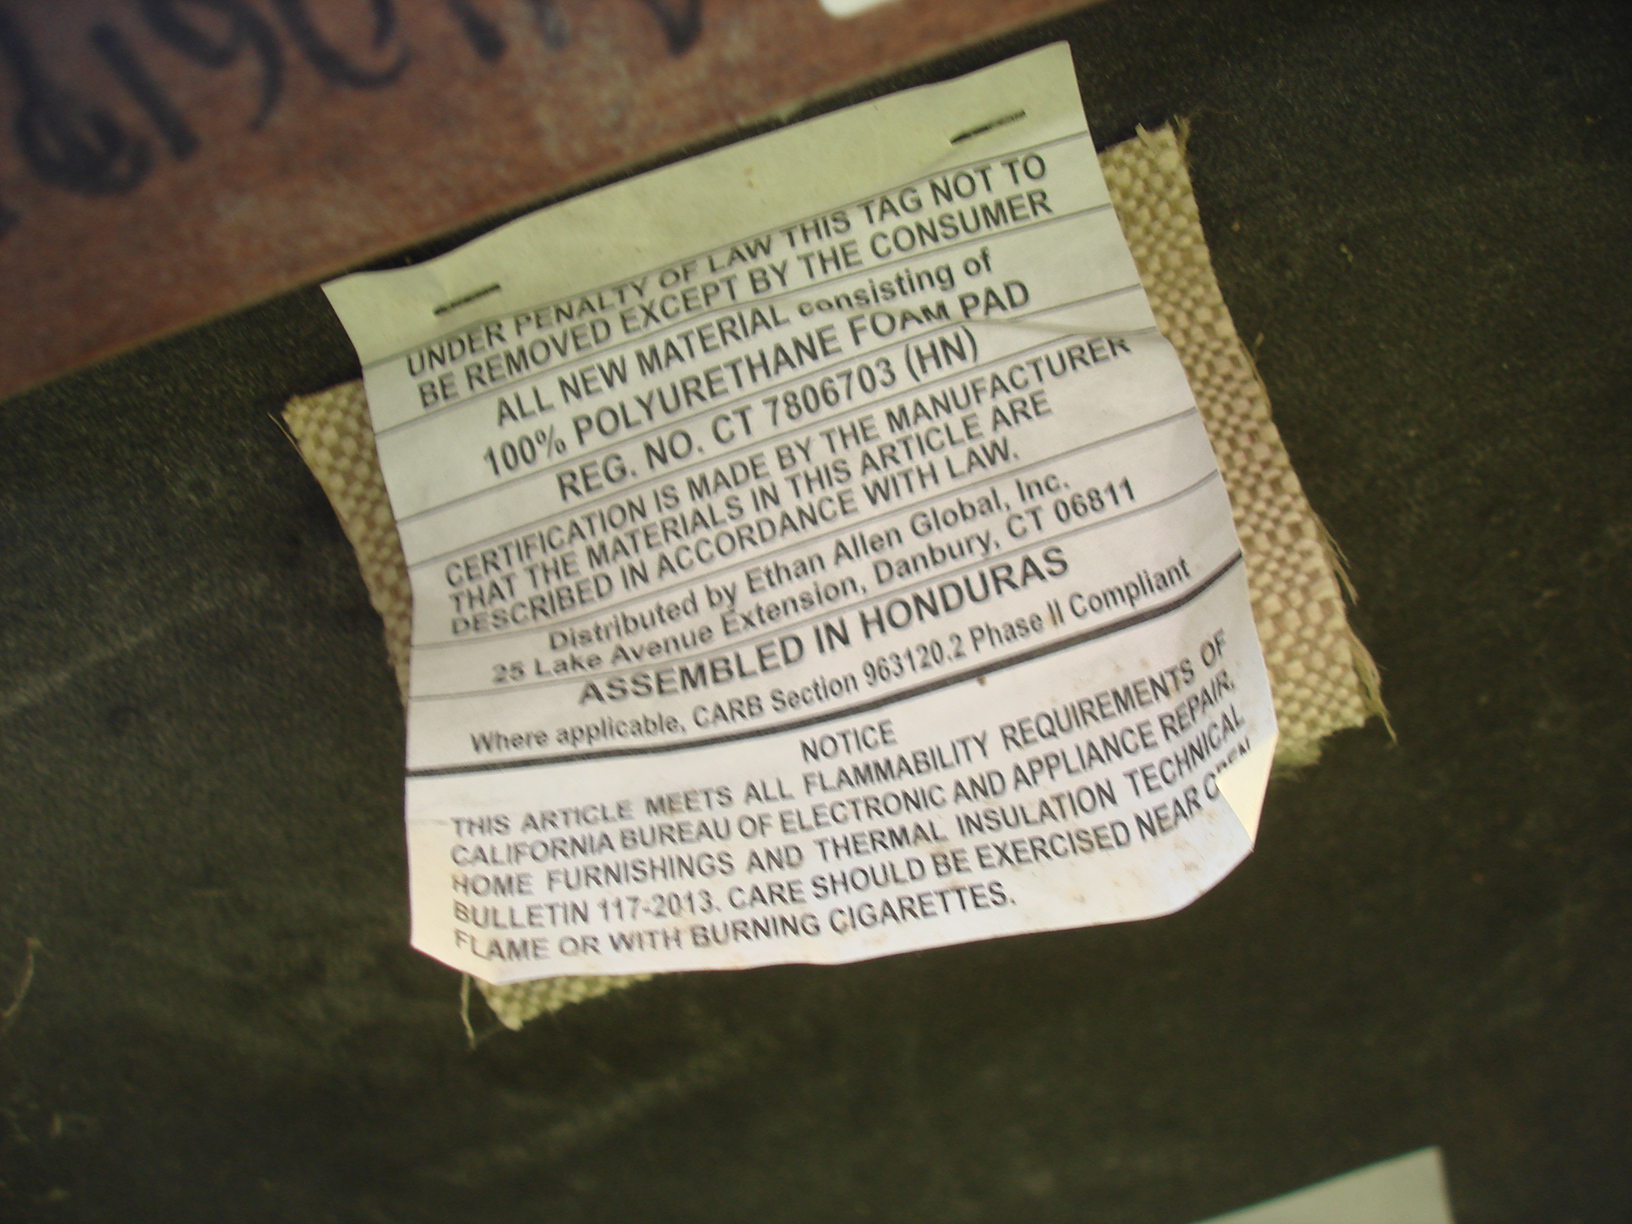 UNDER PENALTY OF LAW THIS TAG NOT TO
BE REMOVED EXCEPT BY THE CONSUMER
ALL NEW MATERIAL consisting of
100% POLYURETHANE FOAM PAD
REG. NO. CT 7806703 (HN)
CERTIFICATION IS MADE BY THE MANUFACTURER
THAT THE MATERIALS IN THIS ARTICLE ARE
DESCRIBED IN ACCORDANCE WITH LAW.
Distributed by Ethan Allen Global, Inc.
25 Lake Avenue Extension, Danbury, CT 06811
ASSEMBLED IN HONDURAS
Where applicable, CARB Section 963120.2 Phase II Compliant
NOTICE
THIS ARTICLE MEETS ALL FLAMMABILITY REQUIREMENTS OF
CALIFORNIA BUREAU OF ELECTRONIC AND APPLIANCE REPAIR,
HOME FURNISHINGS AND THERMAL INSULATION TECHNICAL
BULLETIN 117-2013. CARE SHOULD BE EXERCISED NEAR OPEN
FLAME OR WITH BURNING CIGARETTES.